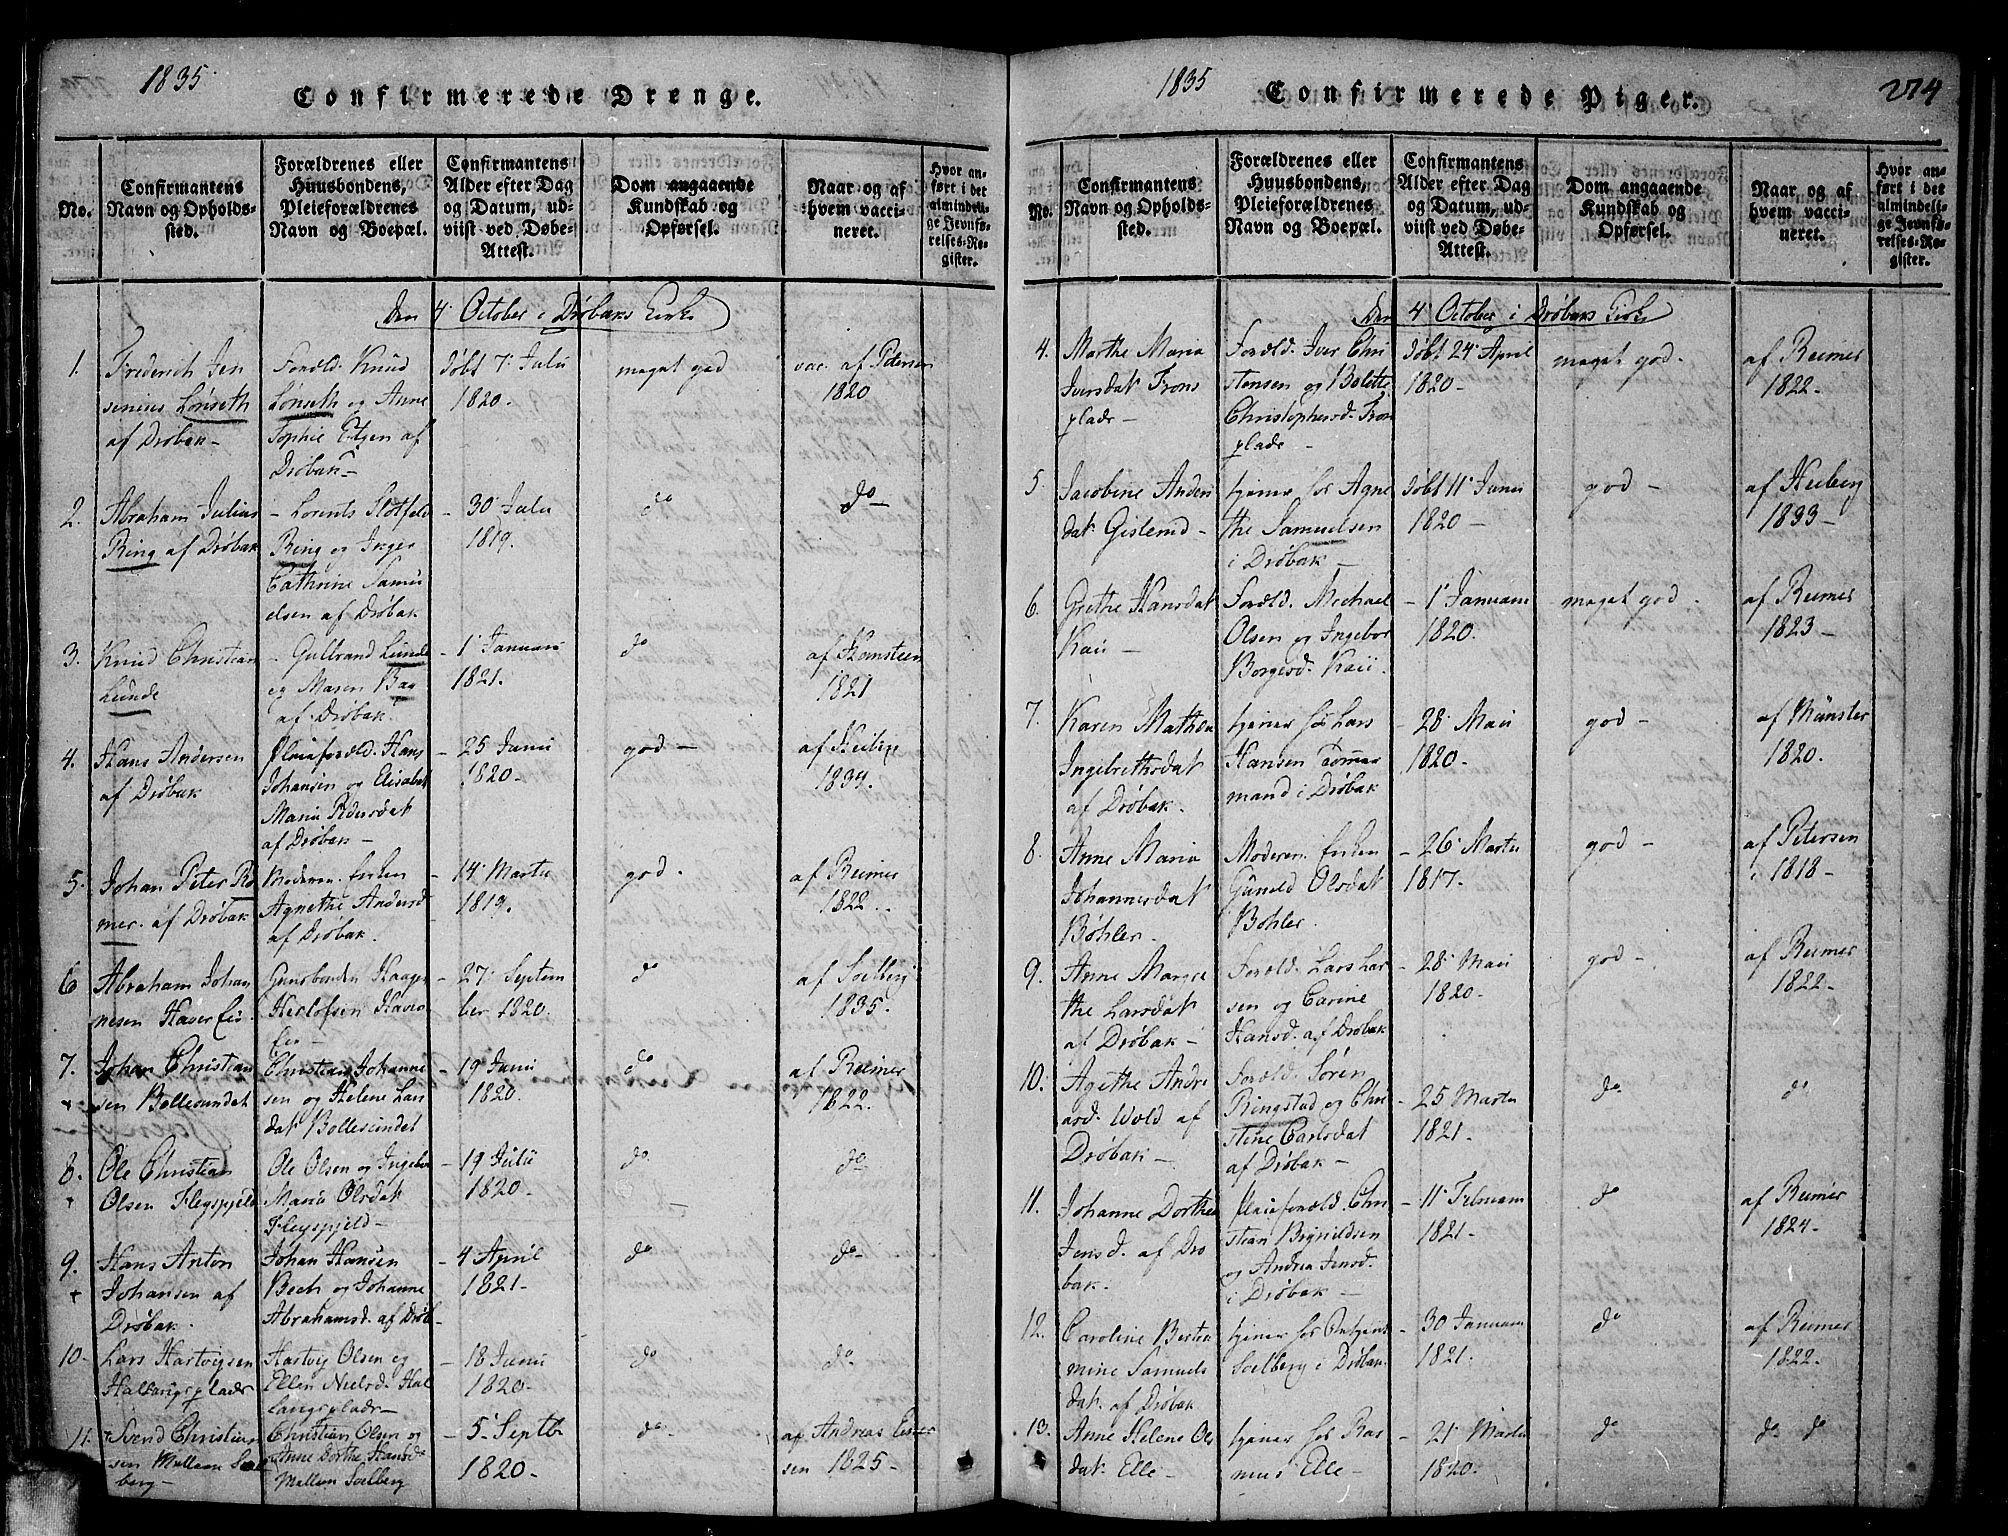 1835
Confirmerede Drenge.
No.
Confirmantens
Navn og Opholds-
sted.
Forældrenes eller
Huusbondens,
Pleieforældrenes
Navn og Boepæl.
Confirmantens
Alder efter Dag
og Datum, ud-
viist ved Døbe-
Attest.
Dom angaaende
Kundskab og
Opførsel.
Naar og af
hvem vacci-
neret.
Hvor an-
ført i det
almindeli-
ge Jevnfø-
relses-Re-
gister.
Den 4 October i Drøbaks Kirke
1. Frederich Jen
senius Lönseth
af Drøbak -
Foræld. Knud
Lönseth og Anne
Sophie af
Drøbak -
døbt 7 Julii
1820.
meget god
vac. af Petersen
1820
2. Abraham Julius
Ring af Drøbak
- Lorents Slotfeldt
Ring og Inger
Cathrine Samu
elsen af Drøbak
- 30 Julii
1819.
do
do
3. Knud Christian
Lunde
- Gulbrand Lunde
og Maren
af Drøbak.
- 1 Januarii
1821.
do
af Hansteen
1821
4. Hans Andersen
af Drøbak
Pleieforæld. Hans
Johansen og Elisabet
Maria Pedersdat
af Drøbak -
- 25 Junii
1820 -
god -
af Heiberg
1834.
5. Johan Peter Rei
mer. af Drøbak
Moderen. Enken
Agnethe Andersd
af Drøbak.
- 14 Martii
1819.
god.
af Reimer
1822.
6 Abraham Johan
nesen Haver
Huusbonden Haagen
Herlofsen Haver
- 27 Septem
ber 1820.
do
af Soelberg
1835.
7. Johan Christian
sen Bollesundet
Christian Johanne
sen og Helene Lars
dat Bollesundet
- 19 Junii
1820.
do
af Reimer
1822.
8. Ole Christian
Olsen Flegspjeld
Ole Olsen og Ingebor
Maria Olsdat
Flegspjeld -
- 19 Julii
1820.
do
do
9. Hans Anton
Johansen af
Drøbak.
Johan Hansen
Bech og Johanne
Abrahamsd. af Drøb
- 4 April
1821 -
do
do
10 - Lars Hartvigsen
Hallangsplads
Hartvig Olsen og
Ellen Nielsd. Hal
langsplads -
- 18 Junii
1820.
do
do
11. Svend Christian
sen Mellem Soel
berg -
Christian Olsen og
Anne Dorthe Hansd.
Mellem Soelberg
- 5 Septbr
1820 -
do
af Andreas
sen 1825 -
1835
Confirmerede Piger.
274
No.
Confirmantens
Navn og Opholds-
sted.
Forældrenes eller
Huusbondens,
Pleieforældrenes
Navn og Boepæl.
Confirmantens
Alder efter Dag
og Datum, ud-
viist ved Døbe-
Attest.
Dom angaaende
Kundskab og
Opførsel.
Naar og af
hvem vacci-
neret.
Hvor an-
ført i det
almindeli-
ge Jevnfø-
relses-Re-
gister.
Den 4 October i Drøbaks Kirke
4. Marthe Maria
Iversdat Trons
plads -
Foræld. Iver Chri
stensen og Bolette
Christophersd. Tron
plads -
døbt 24 April
1820 -
meget god.
af Reimer
1822 -
5. Jacobine Anders
dat Gislerud -
tjener hos Agne
the Samuelsen
i Drøbak -
døbt 11 Junii
1820 -
god -
af Heiberg
1833 -
6. Grethe Hansdat
Kaii -
Foræld. Michael
Olsen og Ingebor
Borgersd. Kaii.
- 1 Januarii
1820.
meget god.
af Reimer
1823 -
7. Karen Mathea
Ingebrethsdat
af Drøbak.
tjener hos Lars
Hansen Tømmer
mand i Drøbak
- 28 Maii
1820 -
god -
af Münster
1820.
8. Anne Maria
Johannesdat
Bøhler.
Moderen. Enken
Gunild Olsdat
Bøhler.
- 26 Martii
1817.
god -
af Petersen
i 1818 -
9. Anne Margre
the Larsdat
af Drøbak -
Foræld. Lars Lar
sen og Carine
Hansd. af Drøbak
- 28 Maii
1820.
god -
af Reimer
1822 -
10. Agethe Andre
asd. Wold af
Drøbak -
Foræld. Søren
Ringstad og Chri
stine Carlsdat
af Drøbak -
- 25 Martii
1821 -
do
do
11. Johanne Dorthea
Jensd. af Drø
bak.
Pleieforæld. Chri
stian Brynildsen
og Andrea Jensd.
i Drøbak -
- 11 Februarii
1821.
do
af Reimer
1824 -
12. Caroline Berta
mine Samuels
dat. af Drøbak
tjener hos
Soelberg i Drøbak
- 30 Januarii
1821.
do
af Reimer
1822 -
13. Anne Helene Ols
dat. Elle -
tjener hos Ras
mus Elle -
- 21 Martii
1820.
do
do do